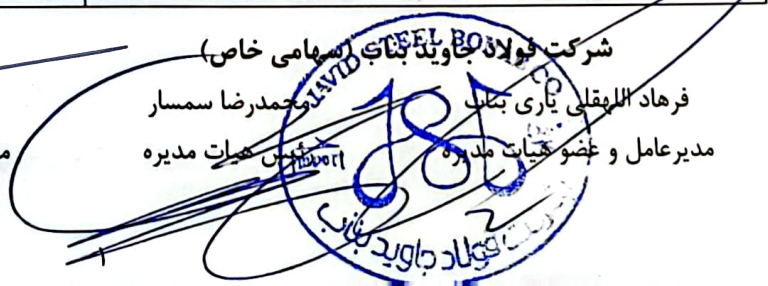 شرکت فولاد جاوید بناب (سهامی خاص)
فرهاد اللهقلی یاری بناب
محمدرضا سمسار
مدیرعامل و عضو هیأت مدیره
رئیس هیأت مدیره
JAVID STEEL BONAB CO.
شرکت فولاد جاوید بناب